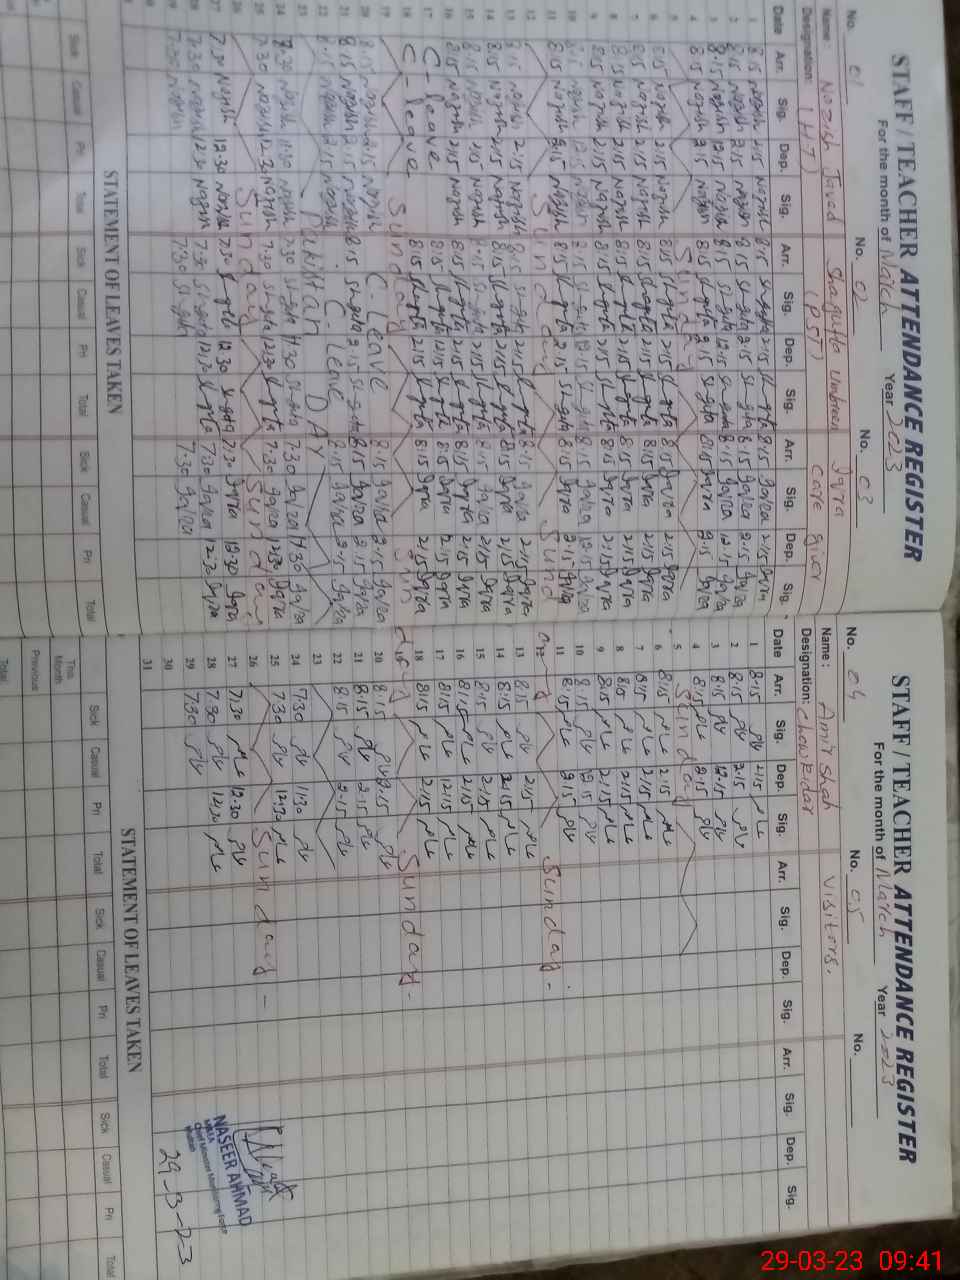 STAFF / TEACHER ATTENDANCE REGISTER
For the month of March Year 2023
No. 01 No. 02 No. 03
Name: Nazish Javed Shagufta Umbreen Iqra
Designation: (HT) (PST) care giver
Date Arr. Sig. Dep. Sig. Arr. Sig. Dep. Sig. Arr. Sig. Dep. Sig.
1 8:15 Nazish 2:15 Nazish 8:15 Shagufta 2:15 Shagufta 8:15 Iqra 2:15 Iqra
2 8:15 Nazish 2:15 Nazish 8:15 Shagufta 2:15 Shagufta 8:15 Iqra 2:15 Iqra
3 8:15 Nazish 12:15 Nazish 8:15 Shagufta 12:15 Shagufta 8:15 Iqra 12:15 Iqra
4 8:15 Nazish 2:15 Nazish 8:15 Shagufta 2:15 Shagufta 8:15 Iqra 2:15 Iqra
5 Sunday
6 8:15 Nazish 2:15 Nazish 8:15 Shagufta 2:15 Shagufta 8:15 Iqra 2:15 Iqra
7 8:15 Nazish 2:15 Nazish 8:15 Shagufta 2:15 Shagufta 8:15 Iqra 2:15 Iqra
8 8:15 Nazish 2:15 Nazish 8:15 Shagufta 2:15 Shagufta 8:15 Iqra 2:15 Iqra
9 8:15 Nazish 2:15 Nazish 8:15 Shagufta 2:15 Shagufta 8:15 Iqra 2:15 Iqra
10 8:15 Nazish 12:15 Nazish 8:15 Shagufta 12:15 Shagufta 8:15 Iqra 12:15 Iqra
11 8:15 Nazish 2:15 Nazish 8:15 Shagufta 2:15 Shagufta 8:15 Iqra 2:15 Iqra
12 Sunday Sund
13 8:15 Nazish 2:15 Nazish 8:15 Shagufta 2:15 Shagufta 8:15 Iqra 2:15 Iqra
14 8:15 Nazish 2:15 Nazish 8:15 Shagufta 2:15 Shagufta 8:15 Iqra 2:15 Iqra
15 8:15 Nazish 2:15 Nazish 8:15 Shagufta 2:15 Shagufta 8:15 Iqra 2:15 Iqra
16 8:15 Nazish 2:15 Nazish 8:15 Shagufta 2:15 Shagufta 8:15 Iqra 2:15 Iqra
17 C-leave 8:15 Shagufta 12:15 Shagufta 8:15 Iqra 12:15 Iqra
18 C-leave 8:15 Shagufta 2:15 Shagufta 8:15 Iqra 2:15 Iqra
19 Sunday Sun
20 8:15 Nazish 2:15 Nazish C-Leave 8:15 Iqra 2:15 Iqra
21 8:15 Nazish 2:15 Nazish 8:15 Shagufta 2:15 Shagufta 8:15 Iqra 2:15 Iqra
22 8:15 Nazish 2:15 Nazish C-Leave 8:15 Iqra 2:15 Iqra
23 Pakistan DAY
24 7:30 Nazish 11:30 Nazish 7:30 Shagufta 11:30 Shagufta 7:30 Iqra 11:30 Iqra
25 7:30 Nazish 12:30 Nazish 7:30 Shagufta 12:30 Shagufta 7:30 Iqra 12:30 Iqra
26 Sunday Sunday
27 7:30 Nazish 12:30 Nazish 7:30 Shagufta 12:30 Shagufta 7:30 Iqra 12:30 Iqra
28 7:30 Nazish 12:30 Nazish 7:30 Shagufta 12:30 Shagufta 7:30 Iqra 12:30 Iqra
29 7:30 Nazish 7:30 Shagufta 7:30 Iqra
STATEMENT OF LEAVES TAKEN
Sick Casual Pri Total Sick Casual Pri Total Sick Casual Pri Total
STAFF / TEACHER ATTENDANCE REGISTER
For the month of March Year 2023
No. 04 No. 05 No.
Name: Amir Shah Visitors.
Designation: Chowkidar
Date Arr. Sig. Dep. Sig. Arr. Sig. Dep. Sig. Arr. Sig. Dep. Sig.
1 8:15 2:15
2 8:15 2:15
3 8:15 12:15
4 8:15 2:15
5 Sunday
6 8:15 2:15
7 8:15 2:15
8 8:15 2:15
9 8:15 2:15
10 8:15 12:15
11 8:15 2:15
12 Sunday.
13 8:15 2:15
14 8:15 2:15
15 8:15 2:15
16 8:15 2:15
17 8:15 12:15
18 8:15 2:15
19 day Sunday.
20 8:15 2:15
21 8:15 2:15
22 8:15 2:15
23
24 7:30 11:30
25 7:30 12:30
26 Sunday
27 7:30 12:30
28 7:30 12:30
29 7:30
30
31
NASEER AHMAD
29-3-23
STATEMENT OF LEAVES TAKEN
Sick Casual Pri Total Sick Casual Pri Total Sick Casual Pri Total
This Month
Previous
Total
29-03-23 09:41